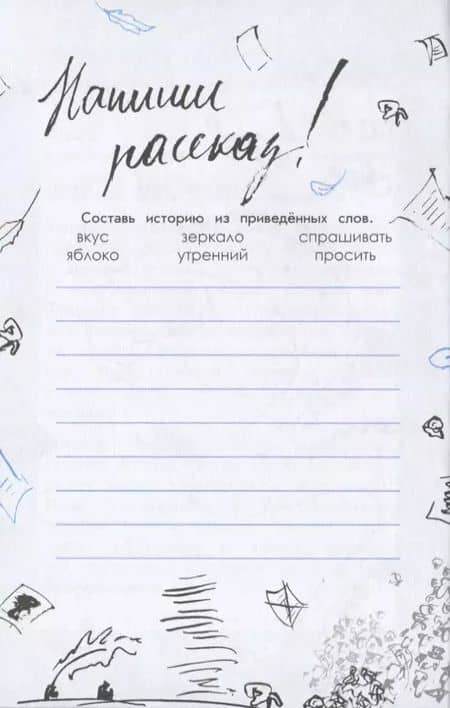 Напиши
рассказ!
Составь историю из приведённых слов.
вкус зеркало спрашивать
яблоко утренний просить